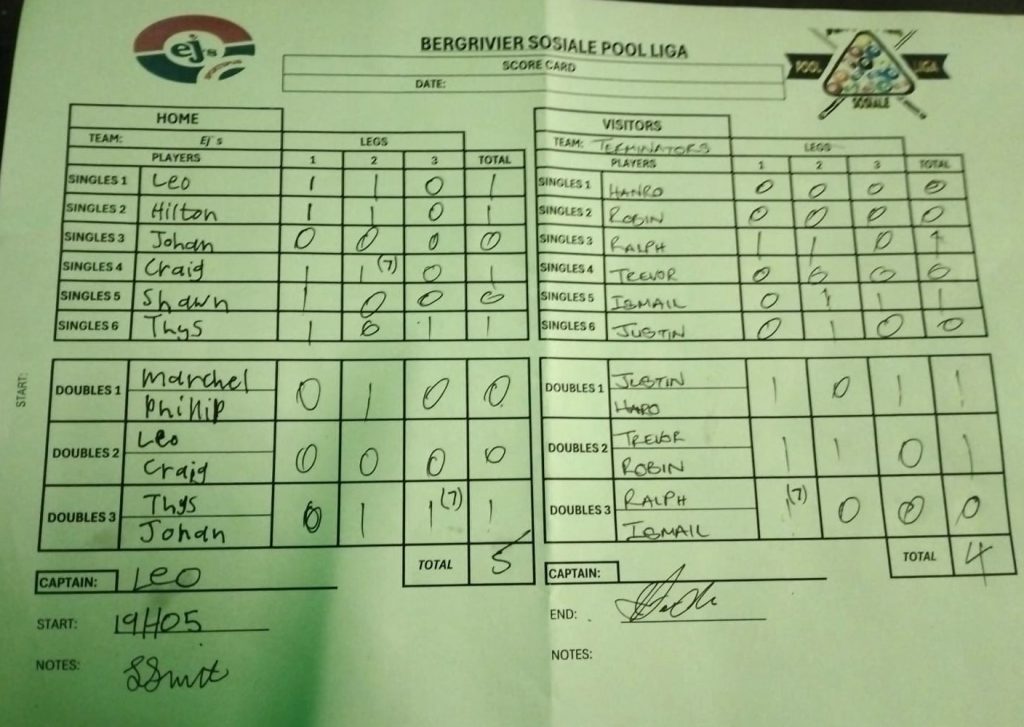 ej's
BERGRIVIER SOSIALE POOL LIGA
SCORE CARD
DATE:
POOL LIGA
SOSIALE
HOME
TEAM: Ej's LEGS
PLAYERS 1 2 3 TOTAL
SINGLES 1 Leo 1 1 0 1
SINGLES 2 Hilton 1 1 0 1
SINGLES 3 Johan 0 0 0 0
SINGLES 4 Craig 1 1 (7) 0 1
SINGLES 5 Shawn 1 0 0 0
SINGLES 6 Thys 1 0 1 1
START:
DOUBLES 1 Marchel 0 1 0 0
Phillip
DOUBLES 2 Leo 0 0 0 0
Craig
DOUBLES 3 Thys 0 1 1 (7) 1
Johan
TOTAL 5
CAPTAIN: LEO
START: 19H05
NOTES:
VISITORS
TEAM: TERMINATORS LEGS
PLAYERS 1 2 3 TOTAL
SINGLES 1 HANRO 0 0 0 0
SINGLES 2 ROBIN 0 0 0 0
SINGLES 3 RALPH 1 1 0 1
SINGLES 4 TREVOR 0 0 0 0
SINGLES 5 ISMAIL 0 1 1 1
SINGLES 6 JUSTIN 0 1 0 0
DOUBLES 1 JUSTIN 1 0 1 1
HARO
DOUBLES 2 TREVOR 1 1 0 1
ROBIN
DOUBLES 3 RALPH 1 (7) 0 0 0
ISMAIL
TOTAL 4
CAPTAIN:
END:
NOTES: